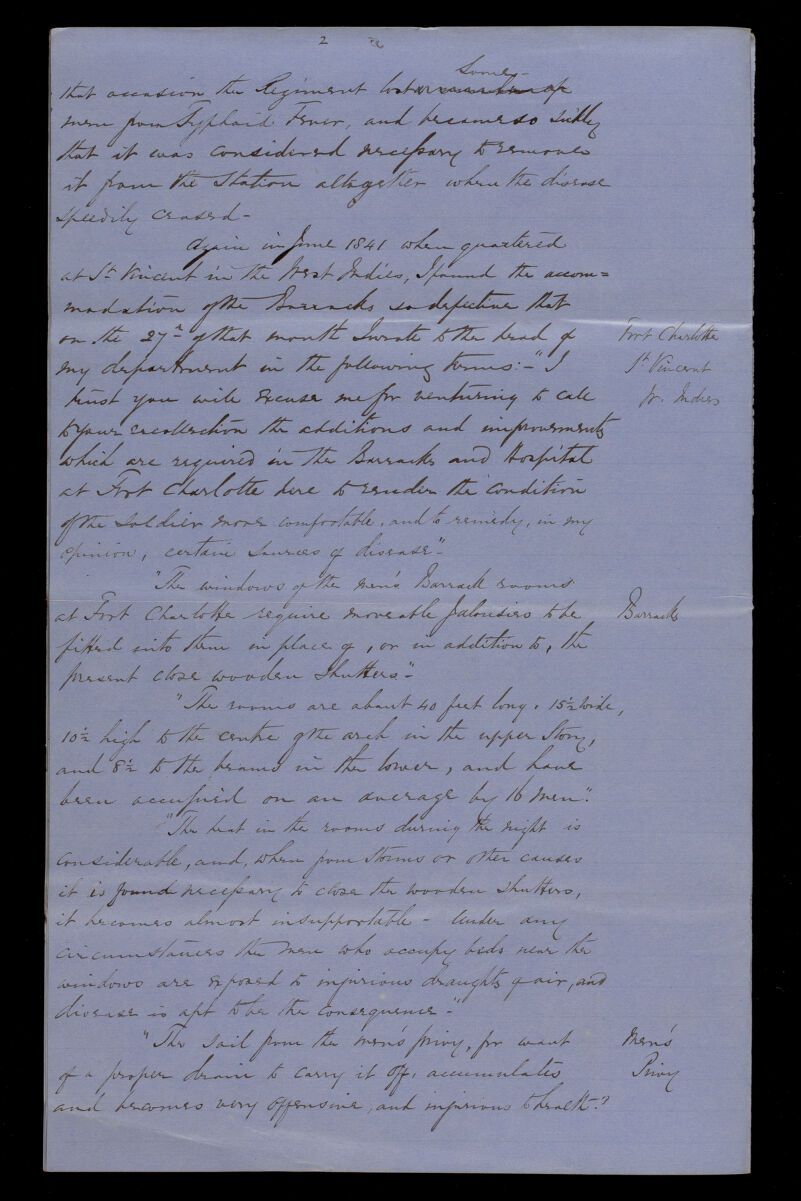 2
some
that occasion the Regiment lost of
men from Typhoid Fever, and became so sickly
that it was considered necessary to remove
it from the Station altogether when the disease
speedily ceased -
Again in June 1841 when quartered
at St Vincent in the West Indies, I found the accom=
modation of the Barracks so defective that
on the 27th of that month I wrote to the head of
Fort Charlotte
my department in the following terms:- "I
St Vincent
trust you will excuse me for venturing to call
W. Indies
to your recollection the additions and improvements
which are required in the Barracks and Hospital
at Fort Charlotte here to render the condition
of the Soldier more comfortable, and to remedy, in my
opinion, certain sources of disease".
"The windows of the men's Barrack rooms
at Fort Charlotte require moveable Jalousies to be
Barracks
fitted into them in place of, or in addition to, the
present close wooden Shutters".
"The rooms are about 40 feet long, 15½ wide,
10½ high to the centre of the arch in the upper Story,
and 8½ to the beams in the lower, and have
been occupied on an average by 16 men".
"The heat in the rooms during the night is
considerable, and, when from Storms or other causes
it is found necessary to close the wooden shutters,
it becomes almost insupportable - Under any
circumstances the men who occupy beds near the
windows are exposed to injurious draughts of air, and
disease is apt to be the consequence -"
"The soil from the men's privy, for want
Men's
of a proper drain to carry it off, accumulates
Privy
and becomes very offensive, and injurious to health."